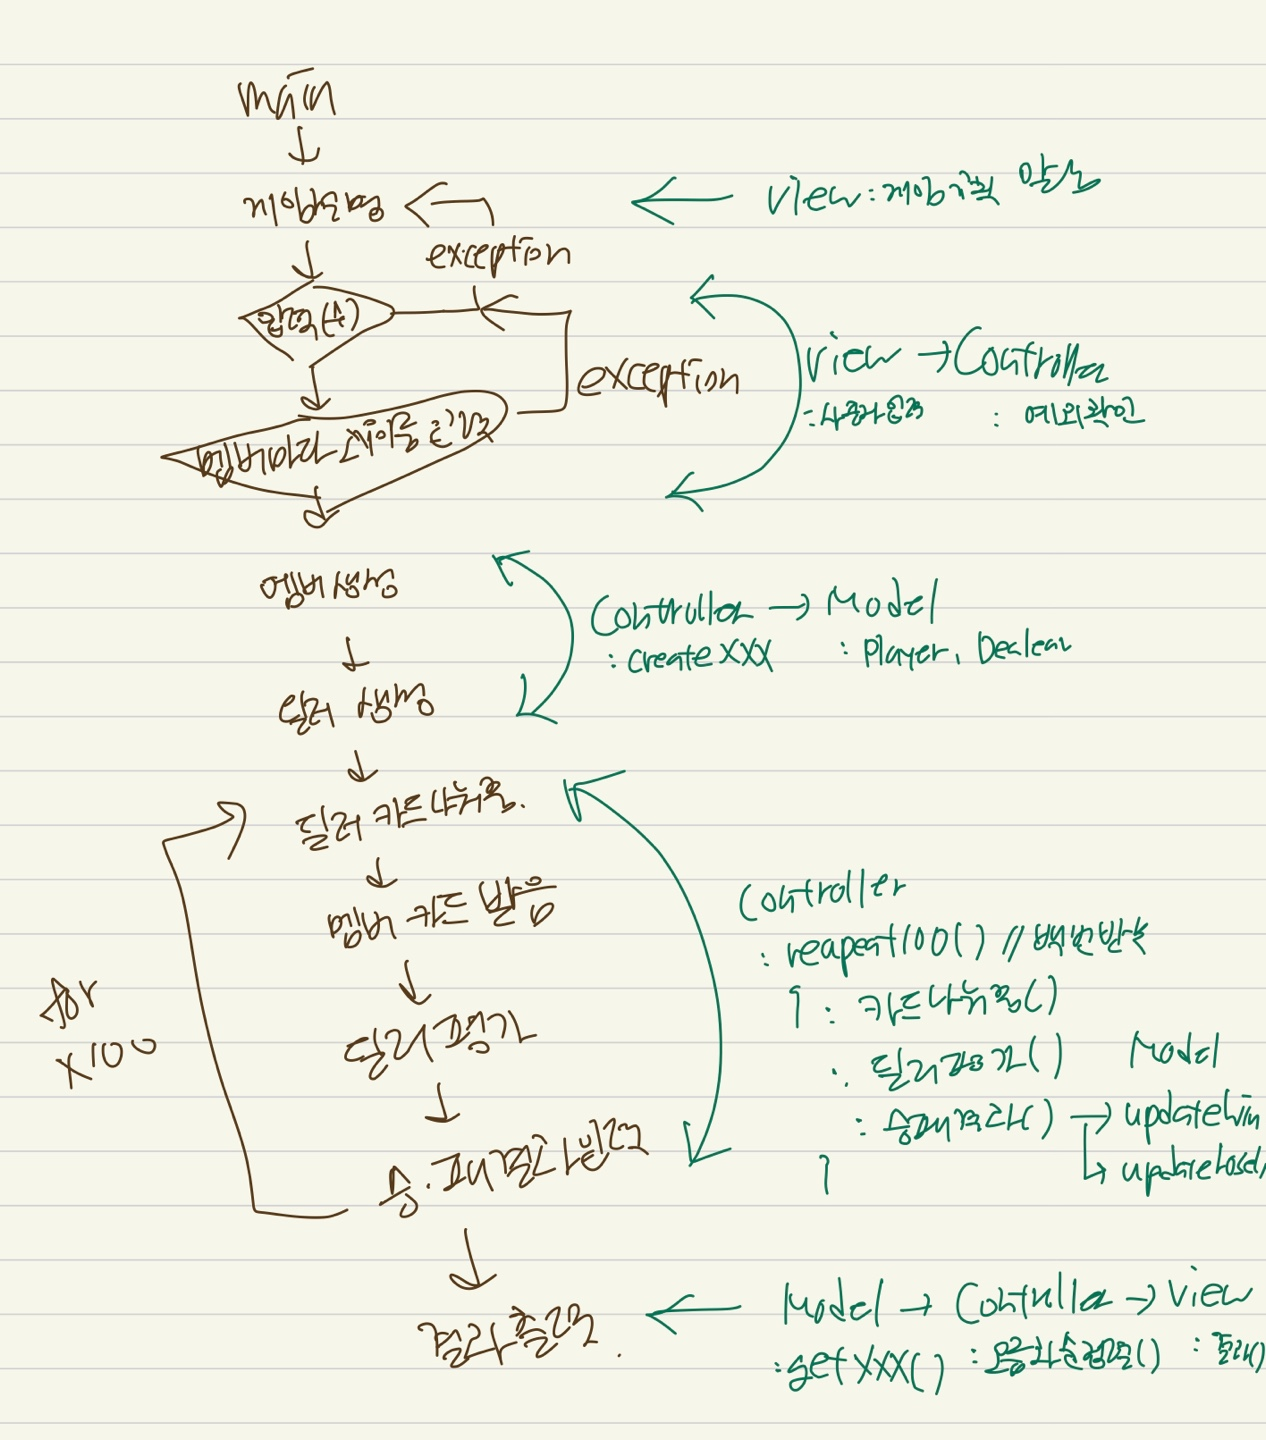 main
게임설명
view : 게임규칙 안내
exception
입력(수)
exception
view → Controller
: 사용자입력 : 예외확인
멤버마다 네이밍 입력
멤버생성
Controller → Model
: create XXX : Player, Dealear
딜러 생성
딜러 카드 나눠줌.
멤버 카드 받음
Controller
: reapeat100() // 백번반복
: 카드나눠줌()
for
x100
딜러 평가
: 딜러평가() Model
: 승패결과() → updateWin
↳ updateLose
승·패 결과 반영
결과출력.
Model → Controller → View
: getXXX() :